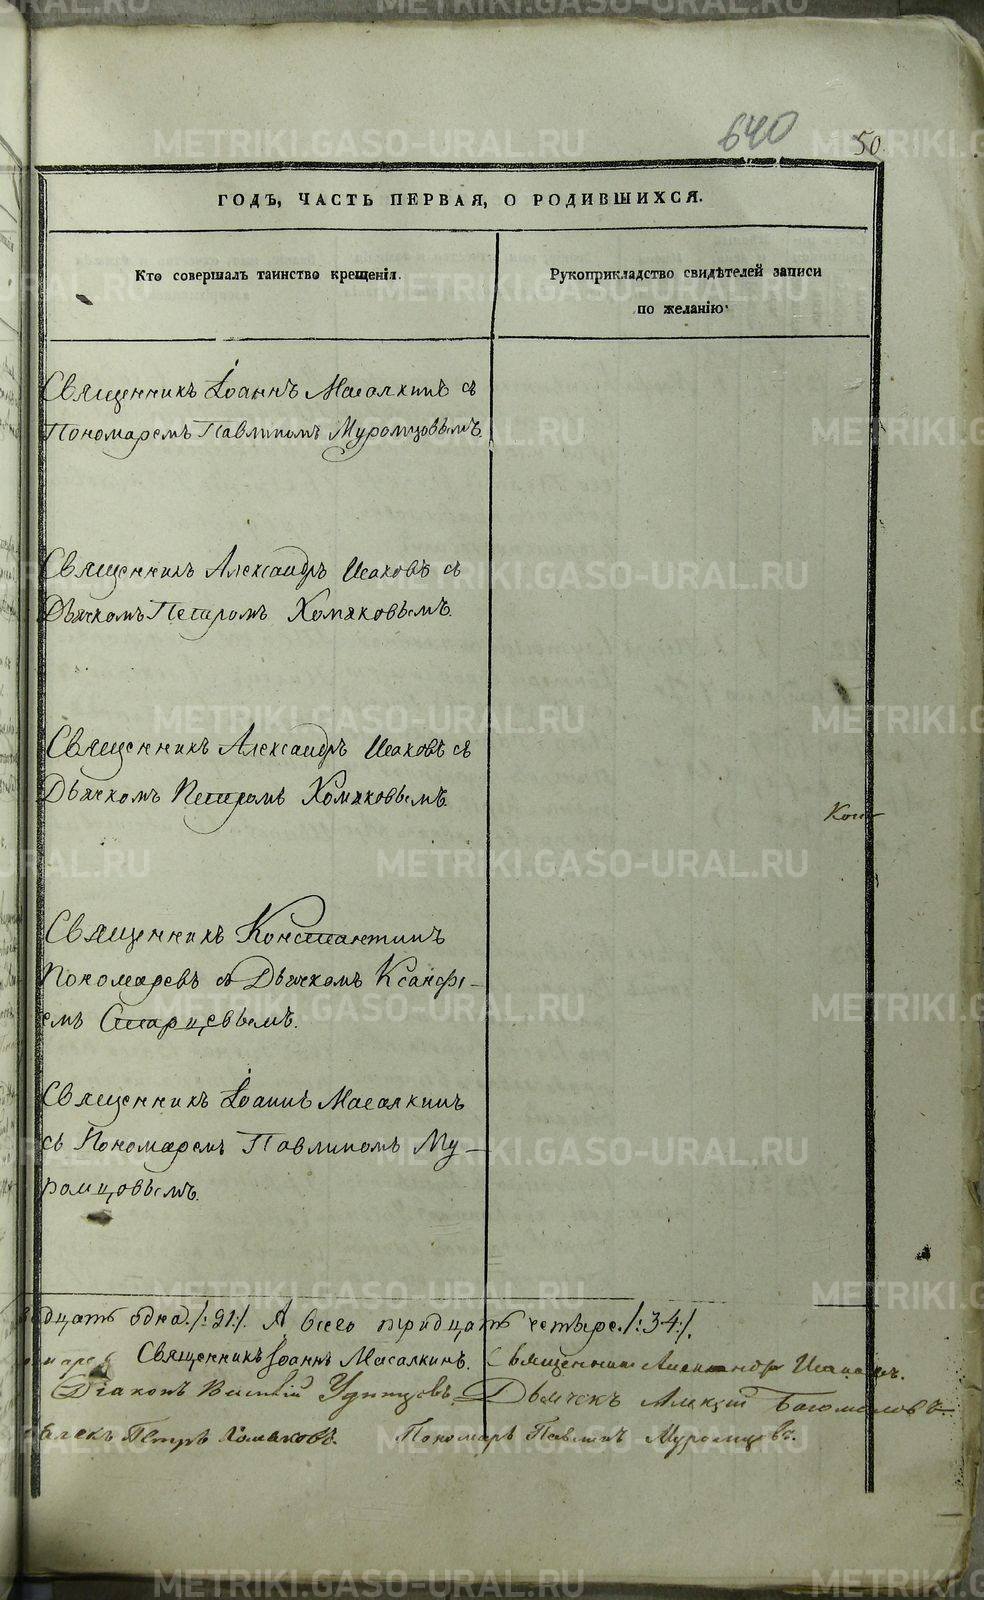 640
50
ГОДЪ, ЧАСТЬ ПЕРВАЯ, О РОДИВШИХСЯ.
Кто совершалъ таинство крещенія.
Рукоприкладство свидѣтелей записи
по желанію
Священникъ Іоаннъ Масалкинъ съ
Пономаремъ Павлиномъ Муромцовымъ.
Священникъ Александръ Исаковъ съ
Дьячкомъ Петромъ Хомяковымъ.
Священникъ Александръ Исаковъ съ
Дьячкомъ Петромъ Хомяковымъ.
Священникъ Константинъ
Пономаревъ съ Дьячкомъ Ксанфі-
емъ Старцевымъ.
Священникъ Іоаннъ Масалкинъ
съ Пономаремъ Павлиномъ Му-
ромцовымъ.
одна /:21:/. А всего тридцать четыре /:34:/.
Священникъ Іоаннъ Масалкинъ. Священникъ Александръ Исаковъ.
Діаконъ Василій Удинцевъ. Дьячекъ Алексій Богомоловъ.
Петръ Хомяковъ. Пономарь Павлинъ Муромцовъ.
METRIKI.GASO-URAL.RU